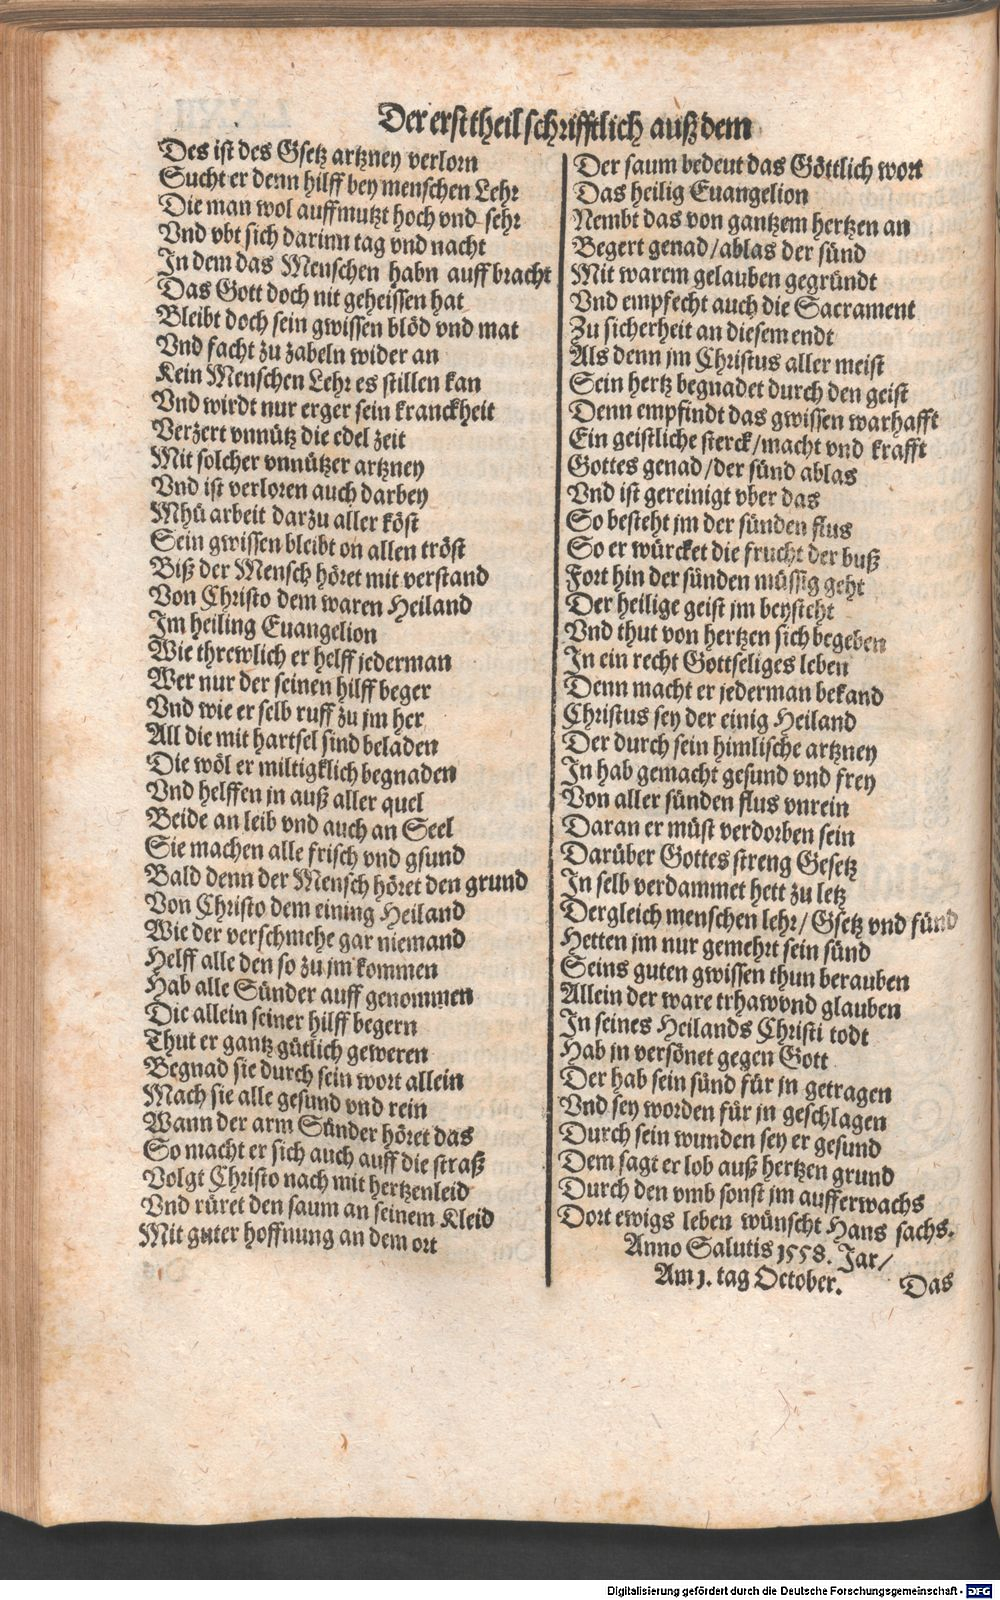 Der erst theil schrifftlich auß dem
Des ist des Gsetz artzney verlorn
Sucht er denn hilff bey menschen Lehr
Die man wol auffmutzt hoch vnd sehr
Vnd vbt sich darinn tag vnd nacht
In dem das Menschen habn auff bracht
Das Gott doch nit geheissen hat
Bleibt doch sein gwissen blöd vnd mat
Vnd facht zu zabeln wider an
Kein Menschen Lehr es stillen kan
Vnd wirdt nur erger sein kranckheit
Verzert vnnütz die edel zeit
Mit solcher vnnützer artzney
Vnd ist verloren auch darbey
Mhü arbeit darzu aller köst
Sein gwissen bleibt on allen tröst
Biß der Mensch höret mit verstand
Von Christo dem waren Heiland
Im heiling Euangelion
Wie threwlich er helff jederman
Wer nur der seinen hilff beger
Vnd wie er selb ruff zu jm her
All die mit hartsel sind beladen
Die wöl er miltigklich begnaden
Vnd helffen jn auß aller quel
Beide an leib vnd auch an Seel
Sie machen alle frisch vnd gsund
Bald denn der Mensch höret den grund
Von Christo dem eining Heiland
Wie der verschmehe gar niemand
Helff alle den so zu jm kommen
Hab alle Sünder auff genommen
Die allein seiner hilff begern
Thut er gantz gütlich geweren
Begnad sie durch sein wort allein
Mach sie alle gesund vnd rein
Wann der arm Sünder höret das
So macht er sich auch auff die straß
Volgt Christo nach mit hertzenleid
Vnd rüret den saum an seinem Kleid
Mit guter hoffnung an dem ort
Der saum bedeut das Göttlich wort
Das heilig Euangelion
Nembt das von gantzem hertzen an
Begert genad/ablas der sünd
Mit warem gelauben gegründt
Vnd empfecht auch die Sacrament
Zu sicherheit an diesem endt
Als denn jm Christus aller meist
Sein hertz begnadet durch den geist
Denn empfindt das gwissen warhafft
Ein geistliche sterck/macht vnd krafft
Gottes genad/der sünd ablas
Vnd ist gereinigt vber das
So besteht jm der sünden flus
So er würcket die frucht der buß
Fort hin der sünden müssig geht
Der heilige geist jm beysteht
Vnd thut von hertzen sich begeben
In ein recht Gottseliges leben
Denn macht er jederman bekand
Christus sey der einig Heiland
Der durch sein himlische artzney
In hab gemacht gesund vnd frey
Von aller sünden flus vnrein
Daran er müst verdorben sein
Darüber Gottes streng Gesetz
In selb verdammet hett zu letz
Dergleich menschen lehr/ Gsetz vnd fünd
Hetten jm nur gemehrt sein sünd
Seins guten gwissen thun berauben
Allein der ware trhaw vnd glauben
In seines Heilands Christi todt
Hab jn versönet gegen Gott
Der hab sein sünd für jn getragen
Vnd sey worden für jn geschlagen
Durch sein wunden sey er gesund
Dem sagt er lob auß hertzen grund
Durch den vmb sonst jm aufferwachs
Dort ewigs leben wünscht Hans sachs.
Anno Salutis 1558. Jar/
Am 1. tag October.
Das
Digitalisierung gefördert durch die Deutsche Forschungsgemeinschaft - DFG